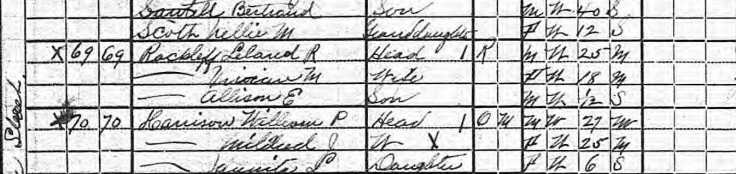 Sawtell Bertrand Son M W 40 S
Scott Nellie M Granddaughter F W 12 S
X 69 69 Rackliff Leland R Head 1 R M W 25 M
— Vivian M Wife F W 18 M
— Allison E Son M W 1/2 S
X 70 70 Harrison William P Head 1 O M M W 27 M
— Mildred J W X F W 25 M
— Juanita L Daughter F W 6 S
Street